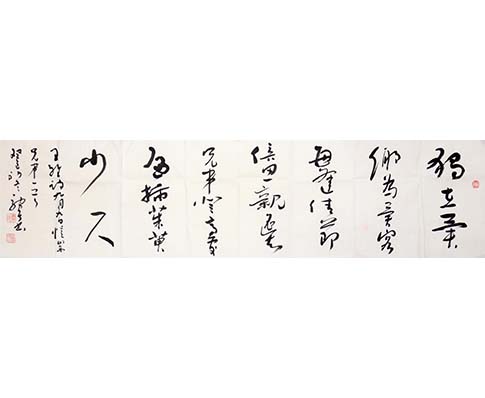 獨在異
鄉為異客
每逢佳節
倍思親遙知
兄弟登高處
遍插茱萸
少一人
王維詩九月九日憶山東
兄弟